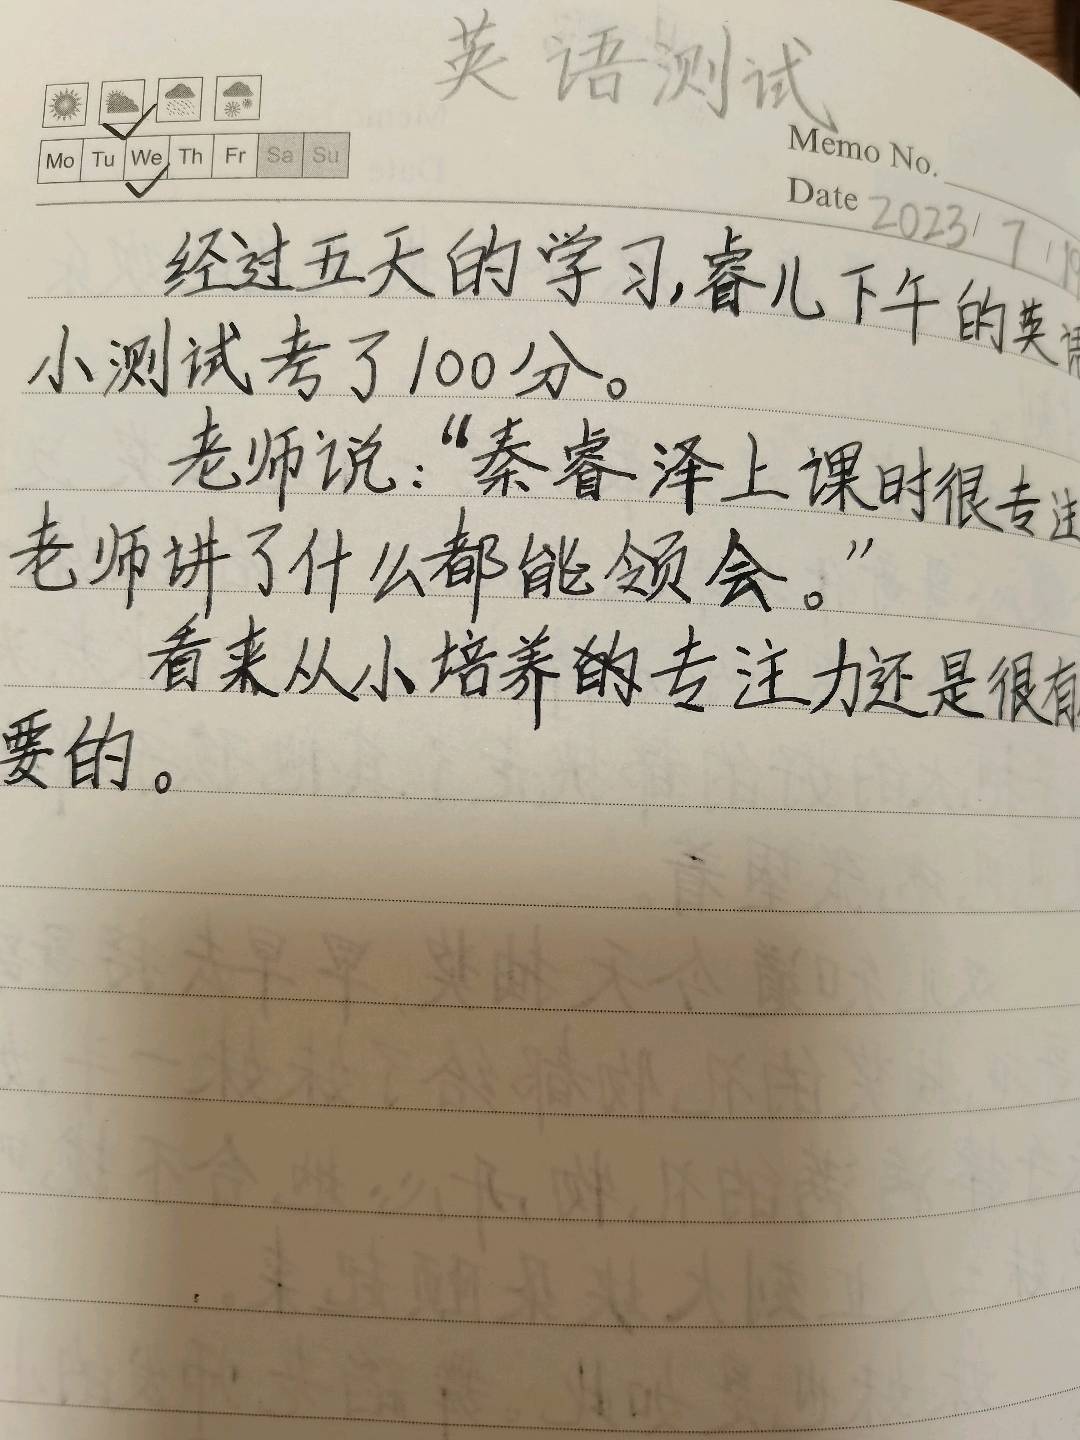 英语测试
Mo Tu We Th Fr Sa Su
Memo No.
Date 2023/7/19
经过五天的学习,睿儿下午的英语
小测试考了100分。
老师说:“秦睿泽上课时很专注
老师讲了什么都能领会。”
看来从小培养的专注力还是很有
要的。